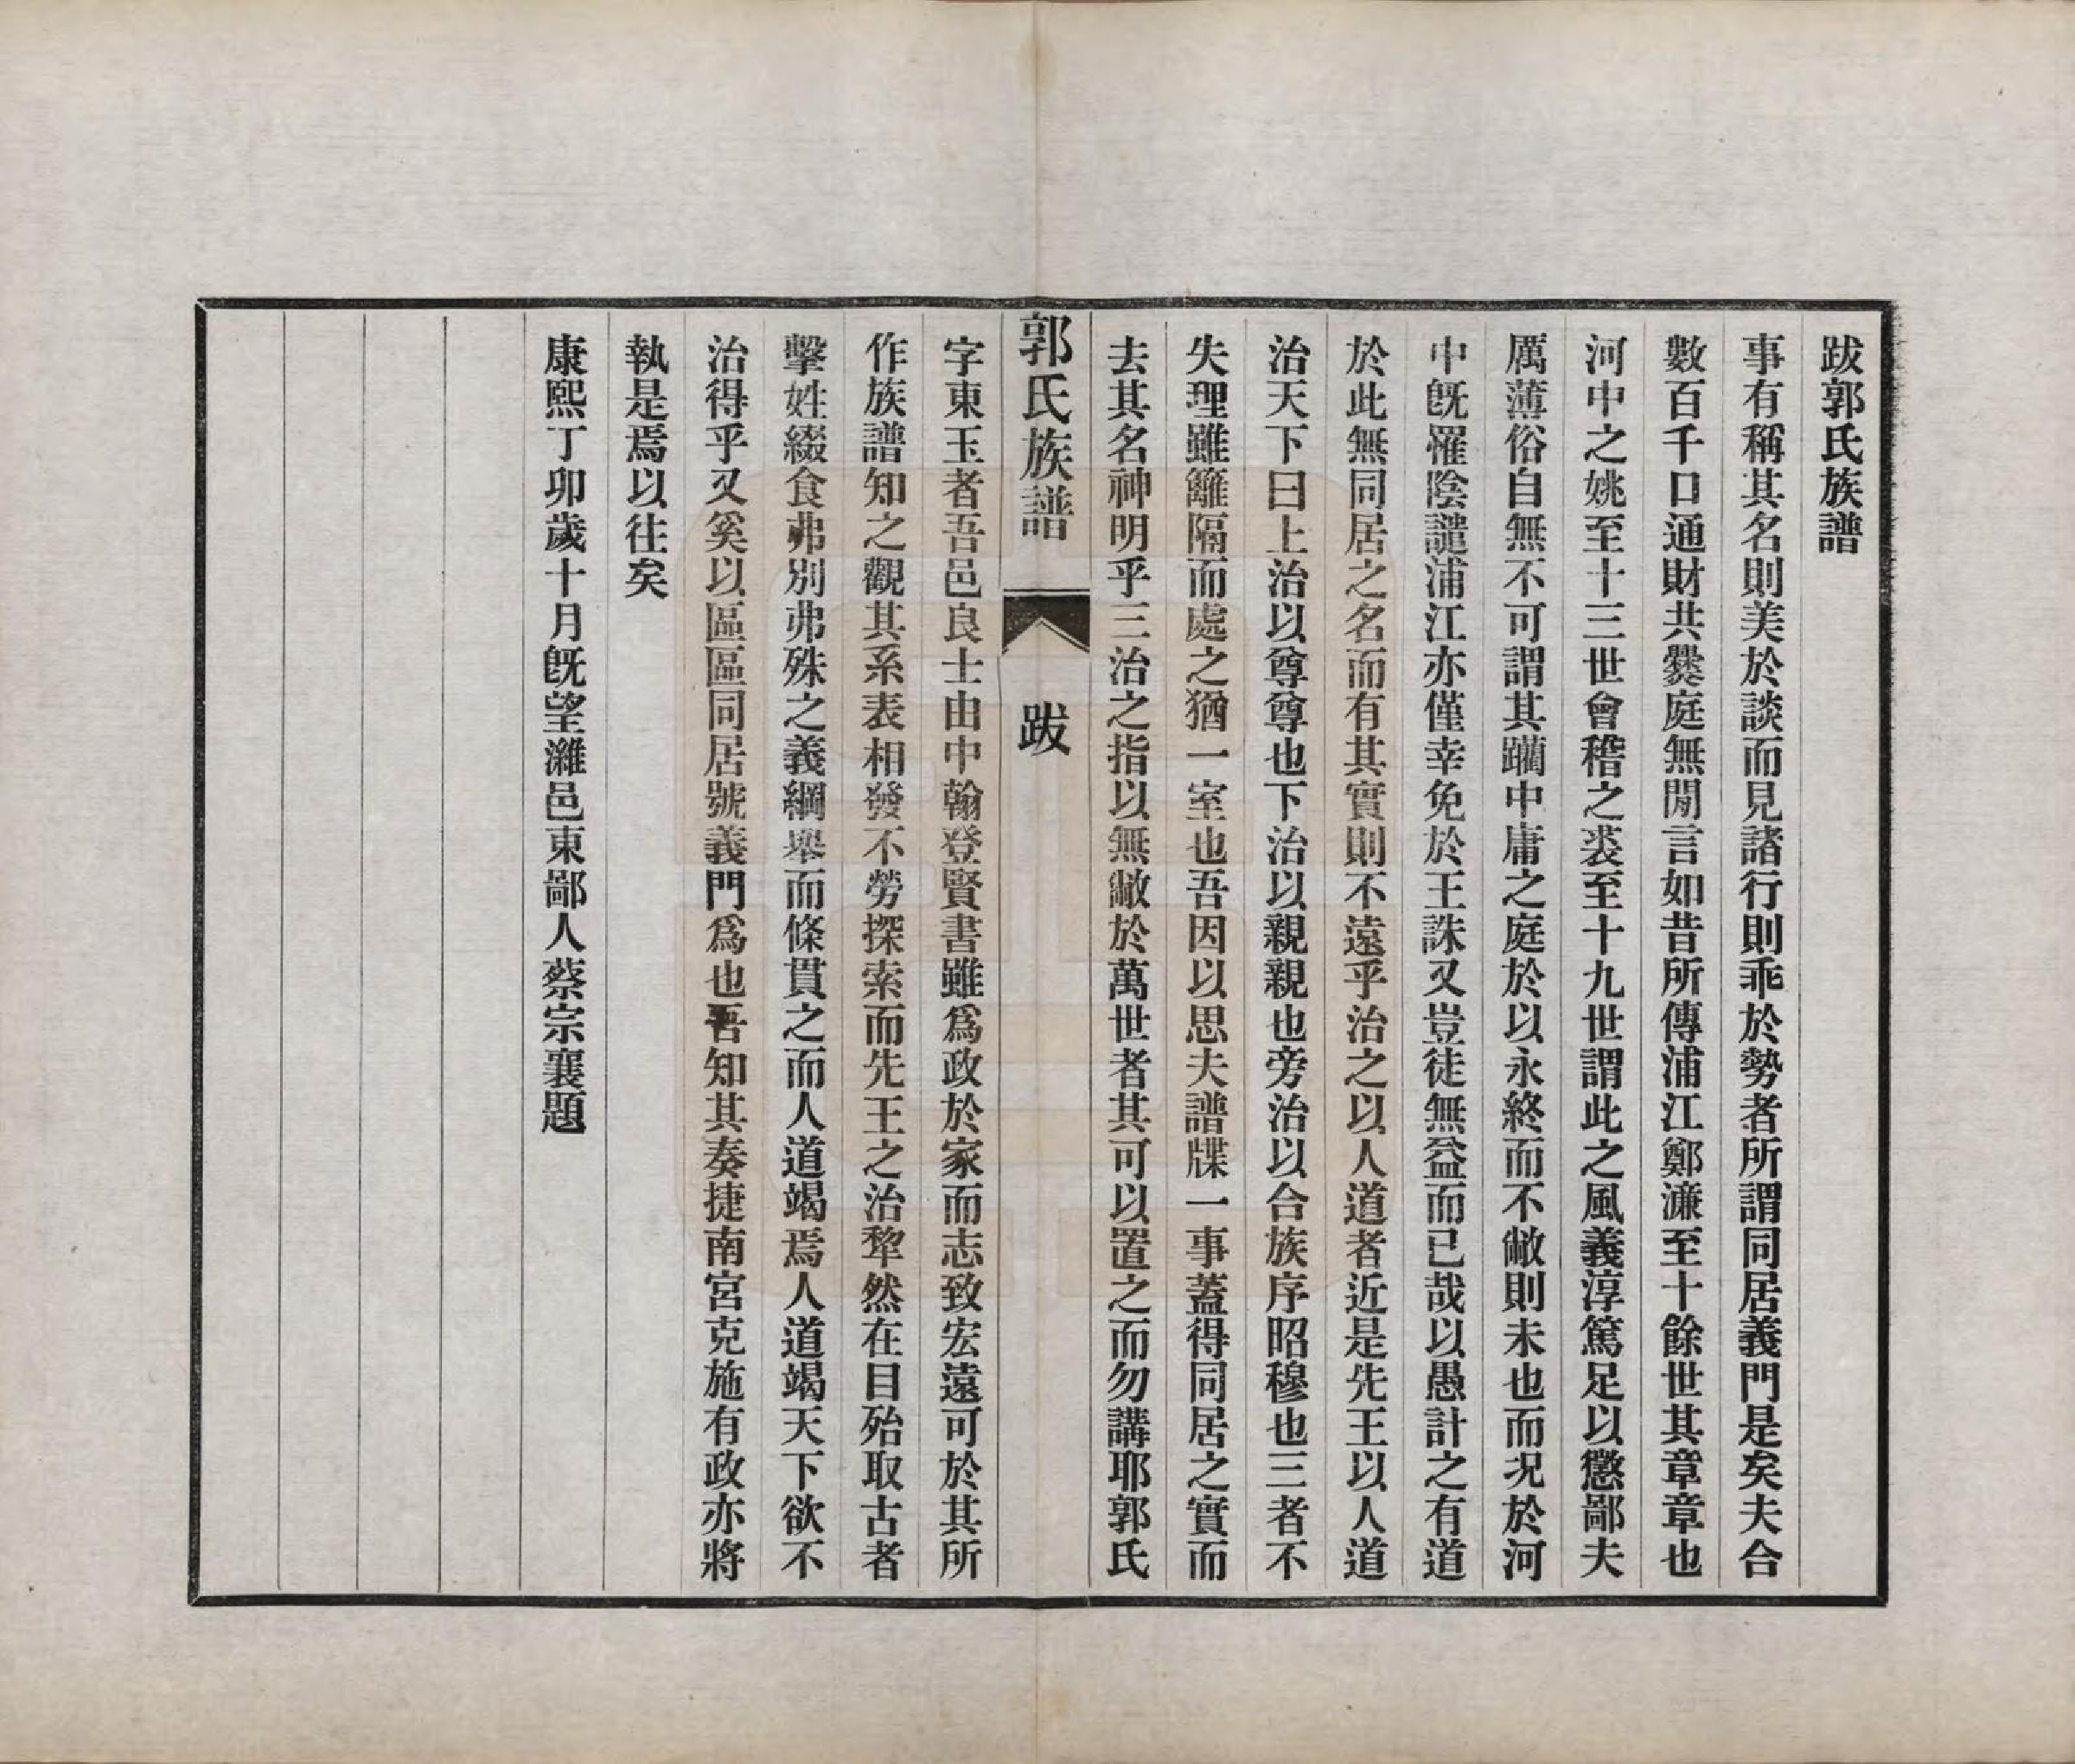 跋郭氏族譜
事有稱其名則美於談而見諸行則乖於勢者所謂同居義門是矣夫合
數百千口通財共爨庭無閒言如昔所傳浦江鄭濂至十餘世其章章也
河中之姚至十三世會稽之裘至十九世謂此之風義淳篤足以懲鄙夫
厲薄俗自無不可謂其躪中庸之庭於以永終而不敝則未也而況於河
中旣罹陰譴浦江亦僅幸免於王誅又豈徒無益而已哉以愚計之有道
於此無同居之名而有其實則不遠乎治之以人道者近是先王以人道
治天下曰上治以尊尊也下治以親親也旁治以合族序昭穆也三者不
失理雖籬隔而處之猶一室也吾因以思夫譜牒一事蓋得同居之實而
去其名神明乎三治之指以無敝於萬世者其可以置之而勿講耶郭氏
郭氏族譜 跋
字東玉者吾邑良士由中翰登賢書雖爲政於家而志致宏遠可於其所
作族譜知之觀其系表相發不勞探索而先王之治犂然在目殆取古者
擊姓綴食弗別弗殊之義綱舉而條貫之而人道竭焉人道竭天下欲不
治得乎又奚以區區同居號義門爲也吾知其奏捷南宮克施有政亦將
執是焉以往矣
康熙丁卯歲十月旣望濰邑東鄙人蔡宗襄題